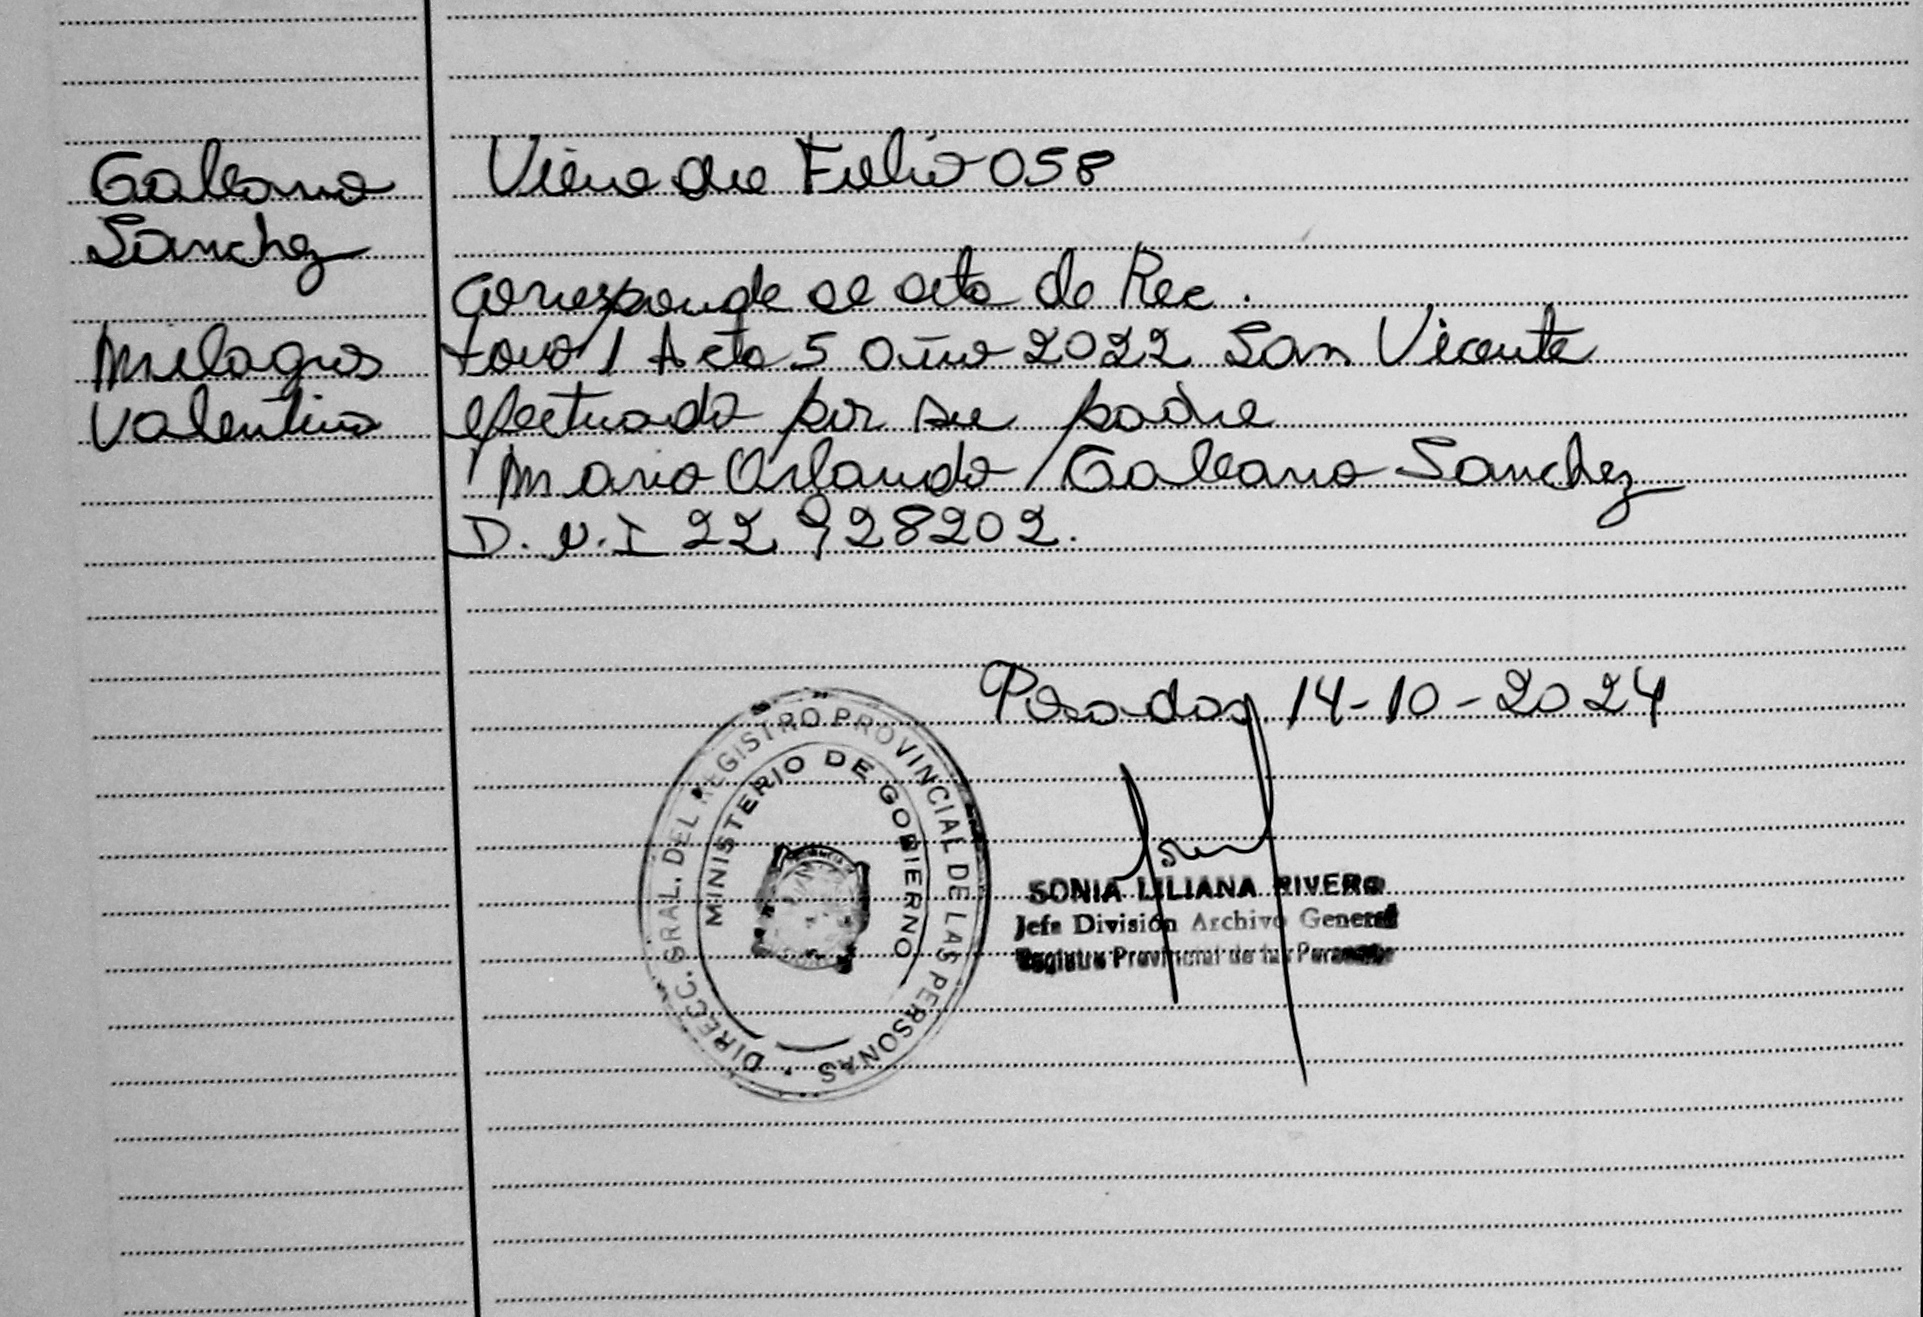 Galeano
Sanchez
Milagros
Valentina
Viene de Folio 058
Corresponde al acta de Rec.
tomo 1 Acta 5 año 2022 San Vicente
efectuado por su padre
Mario Orlando Galeano Sanchez
D.N.I 22928202.
Posadas, 14-10-2024
DIRECC. GRAL. DEL REGISTRO PROVINCIAL DE LAS PERSONAS
MINISTERIO DE GOBIERNO
SONIA LILIANA RIVERO
Jefa División Archivo General
Registro Provincial de las Personas